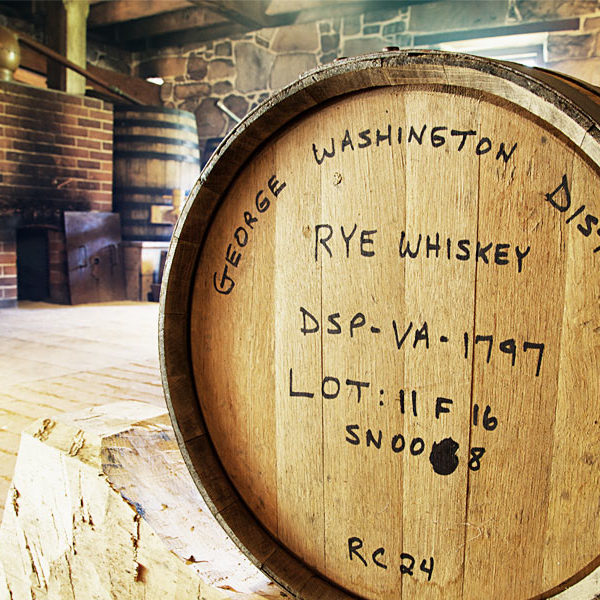 GEORGE WASHINGTON DIS
RYE WHISKEY
DSP-VA-1797
LOT: 11 F 16
SN00 8
RC24